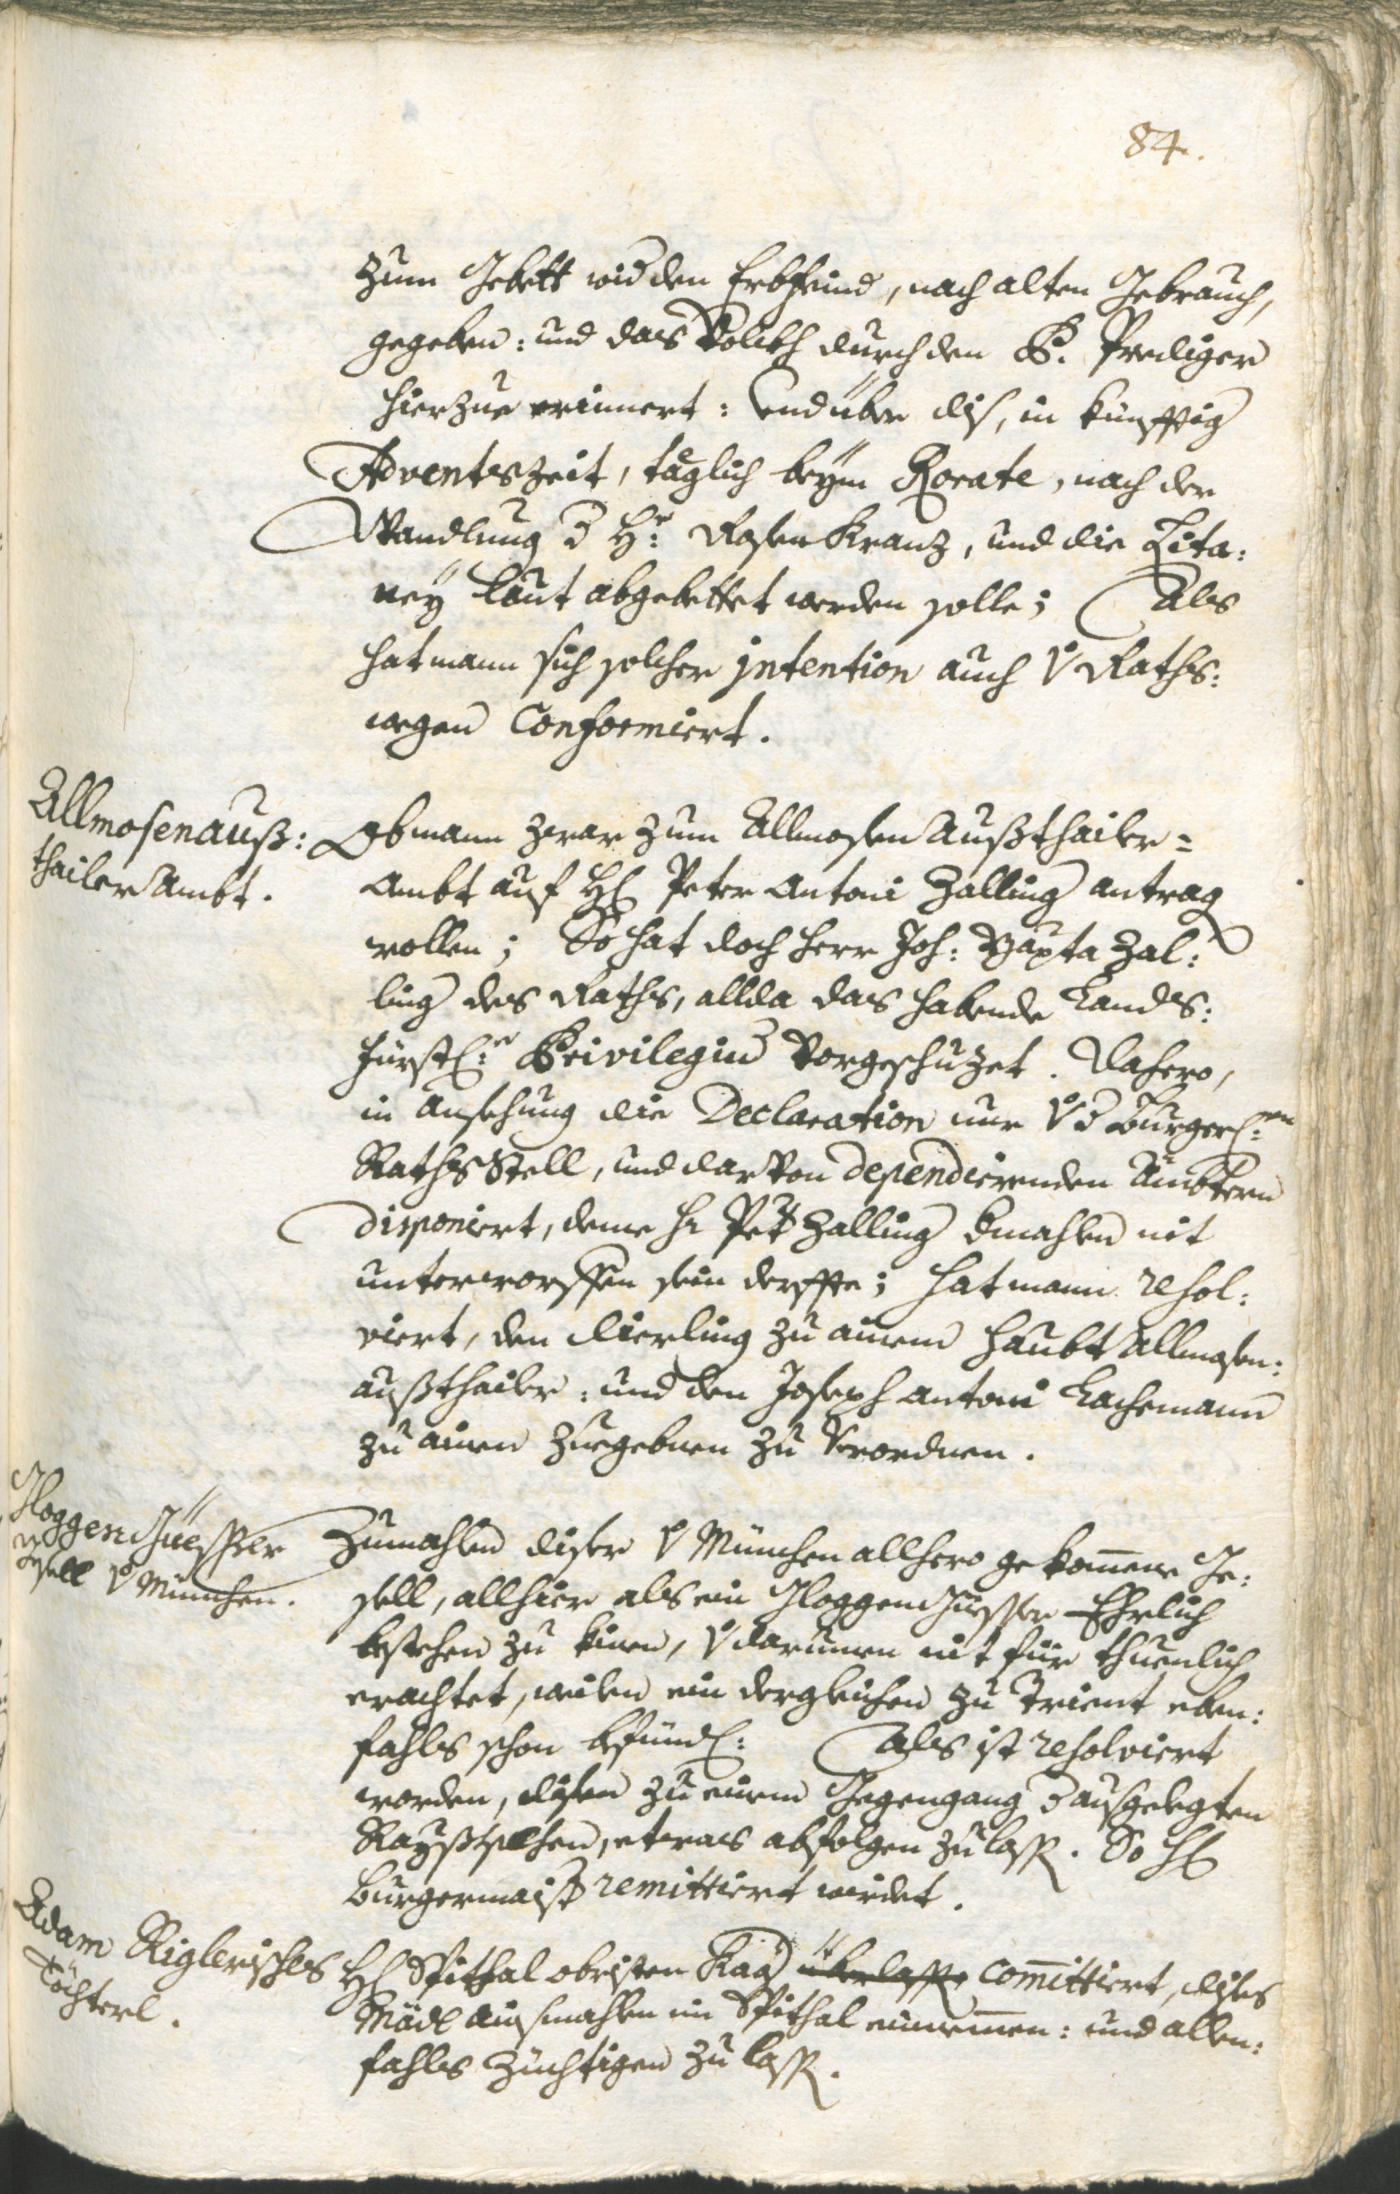 84.
zum Gebett wid den Erbfeind, nach alten Gebrauch,
gegeben: und das Volckh durch den P. Prediger
hierzue erinnert: und über diß, in künfftig
Adventszeit, täglich beÿm Rorate, nach der
Wandlung d H: RosenKranz, und die Lita:
neÿ laut abgebettet werden solle; Als
hat mann sich solcher intention auch v Raths:
wegen Conformiert.
Allmosenauß:
thailer Ambt.
Ob mann zwar zum Allmosen Außthailer=
Ambt auf H Peter Antoni Zalling antrag
wollen; So hat doch Herr Joh: Bapta Zal:
ling des Raths, allda das habende Lands:
fürstl: Privilegium vorgeschuzet. Dahero,
in Ansehung die Declaration nur v d Burgerl:
Raths Stell, und darvon dependierenden Ämbtern
disponiert, deme H Pet Zalling dmahlen nit
unterworffen sein derffte; hat mann resol:
viert, den Dierling zu ainem Haubt Allmosen:
außthailer: und den Joseph Antoni Lachemann
zu ainen zuegebnen zu verordnen.
Gloggen Güesser
Gsell v München.
Zumahlen diser v München allhero gekommene Ge:
sell, allhier als ein Gloggen Güesser Ehrlich
bestehen zu kinen, v darumen nit für thuenlich
erachtet, weilen ein dergleichen zu Trient eben:
fahls schon befündl: Als ist resolviert
worden, disen zu einem Gegengang d außgelegten
Raÿßspesen, etwas abfolgen zu lass. So H
Burgermaist remittiert wirdet.
Adam Riglerisches
Töchterl.
H Spithal obristen Kaä überlasse committiert, dises
Mädl aufmahlen im Spithal einnemmen: und allen:
fahls züchtigen zu lass.